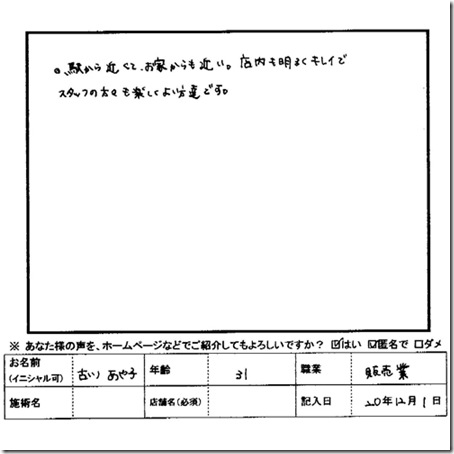 ○、駅から近くて、お家からも近い。店内も明るくキレイで
スタッフの方々も楽しくよい方達です。
※ あなた様の声を、ホームページなどでご紹介してもよろしいですか？ ☑はい ☑匿名で □ダメ
お名前 (イニシャル可) あや子 年齢 31 職業 販売業
施術名 店舗名(必須) 記入日 20年12月1日